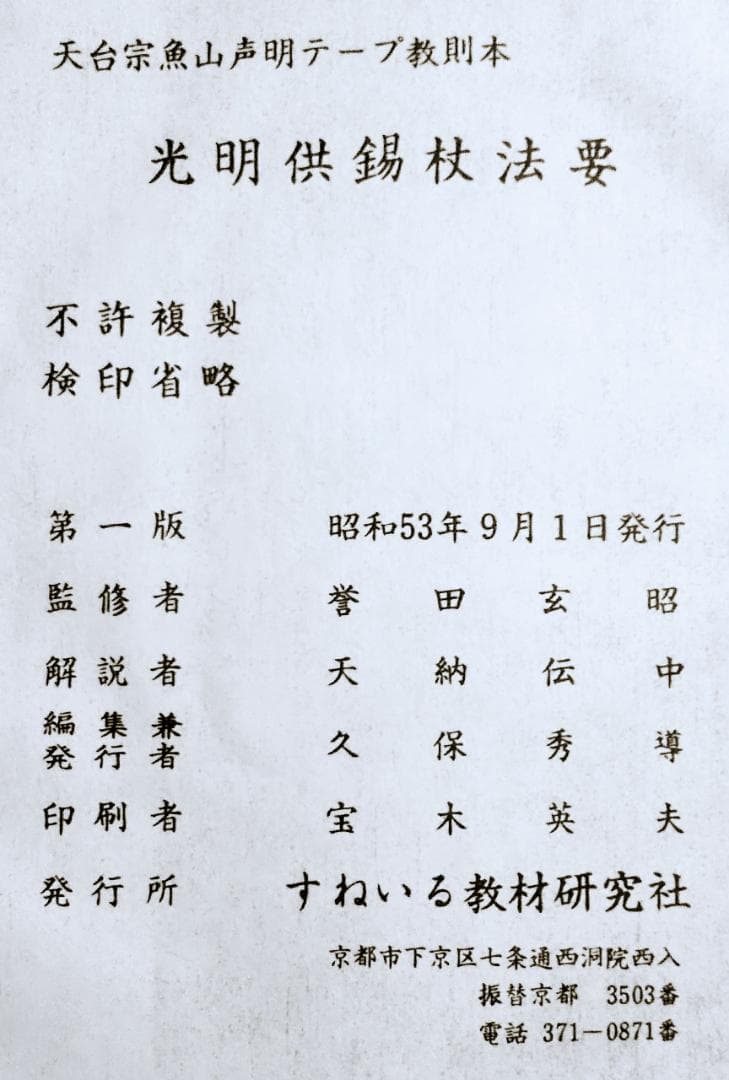 天台宗魚山声明テープ教則本
光明供錫杖法要
不許複製
検印省略
第一版 昭和53年9月1日発行
監修者 誉田玄昭
解説者 天納伝中
編集兼発行者 久保秀導
印刷者 宝木英夫
発行所 すねいる教材研究社
京都市下京区七条通西洞院西入
振替京都 3503番
電話 371-0871番